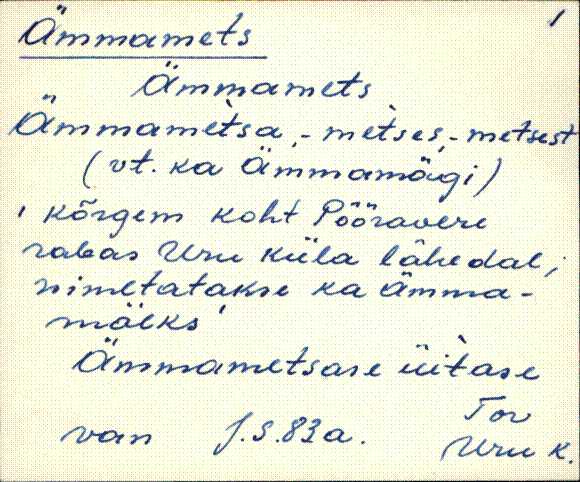 1
Ämmamets
Ämmamets
Ämmamètsa, -mètses, -metsest
(vt. ka Ämmamägi)
' kõrgem koht Pööravere
rabas Uru küla lähedal,
nimetatakse ka Ämma-
mäeks '
Ämmametsase üìtase
Tor
van J.S. 83 a. Uru k.